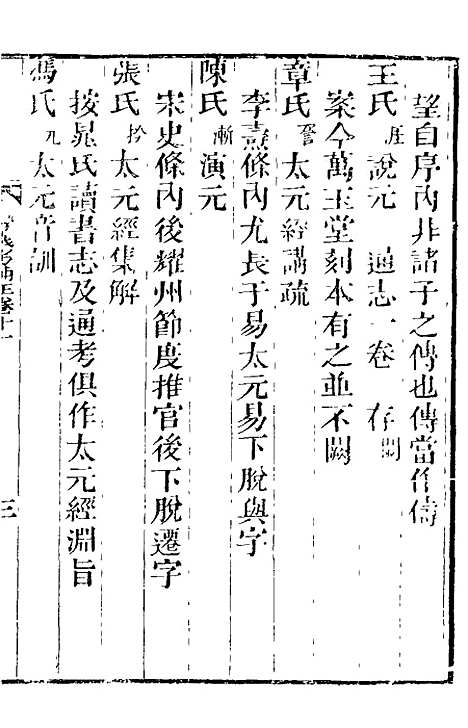 望自序內非諸子之傳也傳當作儔
王氏涯說元 通志一卷 存闕
案今萬玉堂刻本有之並不闕
章氏詧太元經講疏
李燾條內尤長于易太元易下脫與字
陳氏漸演元
宋史條內後耀州節度推官後下脫遷字
張氏拎太元經集解
按晁氏讀書志及通考俱作太元經淵旨
馮氏元太元音訓
經義考補正卷十一
三